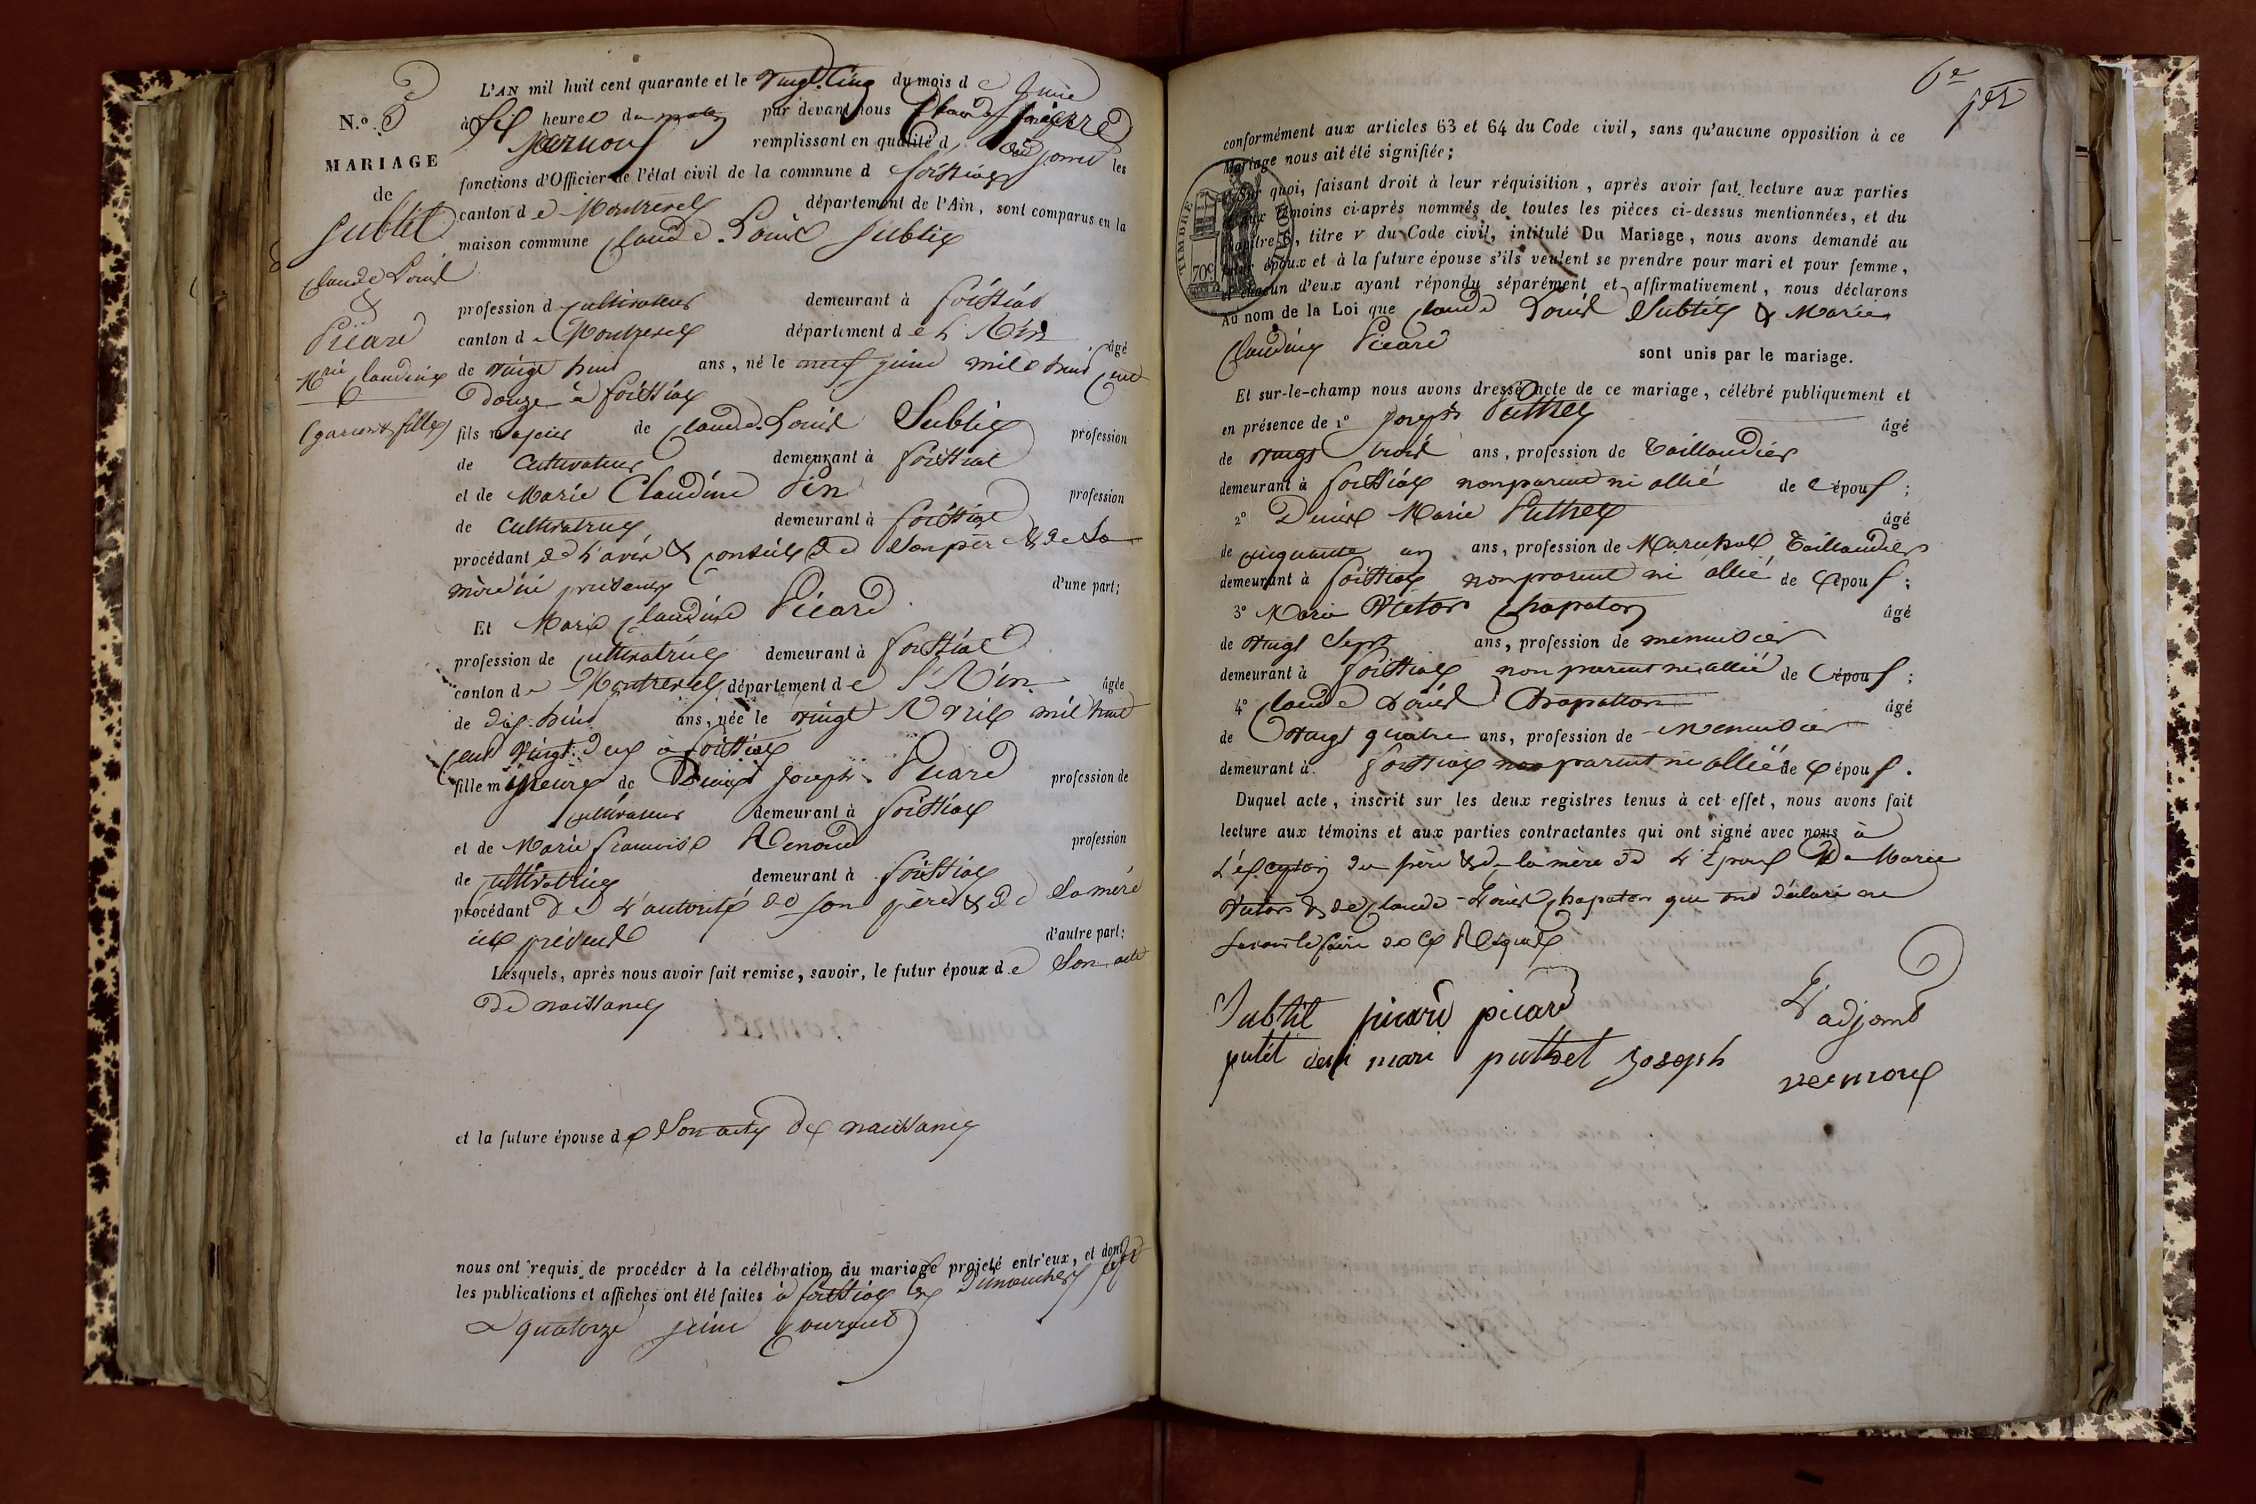 N.o 5
MARIAGE
de
Subtil
Claude Louis
&
Picard
Mrie Claudine
(garçon & fille)
L'AN mil huit cent quarante et le vingt cinq du mois de Juin
à six heures du matin par devant nous Claude
remplissant en qualité d'adjoint les
fonctions d'Officier de l'état civil de la commune de foissiat
canton de Montrevel département de l'Ain, sont comparus en la
maison commune Claude Louis Subtil
profession de cultivateur demeurant à foissiat
canton de Montrevel département de L'Ain âgé
de vingt huit ans, né le neuf juin mil huit cent
Douze à foissiat
fils majeur de Claude Louis Subtil profession
de Cultivateur demeurant à foissiat
et de Marie Claudine Pin profession
de Cultivatrice demeurant à foissiat
procédant de L'avis & conseil de Son père & de Sa
mère ici présents d'une part;
Et Marie Claudine Picard
profession de cultivatrice demeurant à foissiat
canton de Montrevel département de L'Ain âgée
de dix huit ans, née le vingt Avril mil huit
cent vingt deux à foissiat
fille mineure de Denis Joseph Picard profession de
cultivateur demeurant à foissiat
et de Marie françoise Renoud profession
de cultivatrice demeurant à foissiat
procédant de L'autorité de son père & de Sa mère
ici présents d'autre part:
Lesquels, après nous avoir fait remise, savoir, le futur époux de Son acte
De naissance
et la future épouse de Son acte De naissance
nous ont requis de procéder à la célébration du mariage projeté entr'eux, et dont
les publications et affiches ont été faites à foissiat les Dimanches sept
& quatorze juin courant
6e
conformément aux articles 63 et 64 du Code civil, sans qu'aucune opposition à ce
Mariage nous ait été signifiée;
Sur quoi, faisant droit à leur réquisition, après avoir fait lecture aux parties
aux témoins ci-après nommés de toutes les pièces ci-dessus mentionnées, et du
chapitre 6, titre v du Code civil, intitulé Du Mariage, nous avons demandé au
futur époux et à la future épouse s'ils veulent se prendre pour mari et pour femme,
et chacun d'eux ayant répondu séparément et affirmativement, nous déclarons
Au nom de la Loi que Claude Louis Subtil & Marie
Claudine Picard sont unis par le mariage.
TIMBRE ROYAL
70c
Et sur-le-champ nous avons dressé acte de ce mariage, célébré publiquement et
en présence de 1o Joseph Puthet âgé
de vingt trois ans, profession de Taillandier
demeurant à foissiat non parent ni allié de l'époux;
2o Denis Marie Puthet âgé
de cinquante un ans, profession de Marechal Taillandier
demeurant à foissiat non parent ni allié de l'époux;
3o Marie Victor Chapaton âgé
de vingt Sept ans, profession de menuisier
demeurant à foissiat non parent ni allié de l'époux;
4o Claude Louis Chapaton âgé
de vingt quatre ans, profession de Menuisier
demeurant à foissiat non parent ni allié de l'époux.
Duquel acte, inscrit sur les deux registres tenus à cet effet, nous avons fait
lecture aux témoins et aux parties contractantes qui ont signé avec nous à
L'éxception du père & de la mère de L'époux De Marie
Victor & de Claude Louis Chapaton qui ont déclaré ne
Savoir le faire de ce Requis
Subtil picard picard L'adjoint
putét deni mari puthet Joseph